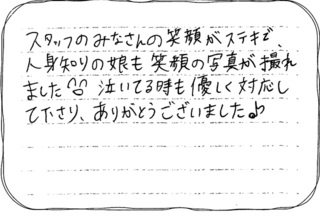 スタッフのみなさんの笑顔がステキで、
人身知りの娘も笑顔の写真が撮れ
ました 泣いてる時も優しく対応し
て下さり、ありがとうございました♪